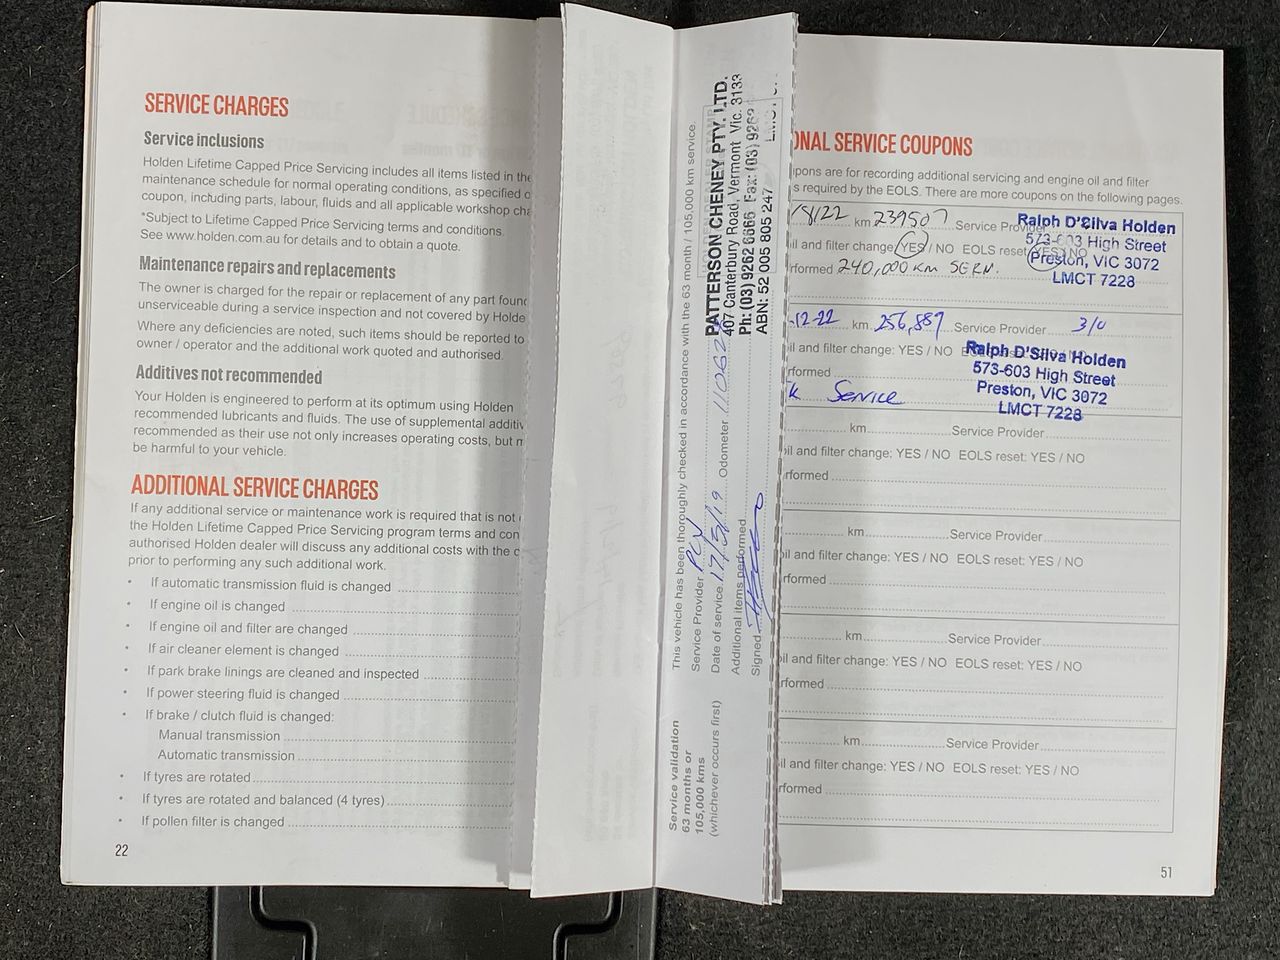 SERVICE CHARGES
Service inclusions
Holden Lifetime Capped Price Servicing includes all items listed in the
maintenance schedule for normal operating conditions, as specified o
coupon, including parts, labour, fluids and all applicable workshop cha
*Subject to Lifetime Capped Price Servicing terms and conditions.
See www.holden.com.au for details and to obtain a quote.
Maintenance repairs and replacements
The owner is charged for the repair or replacement of any part foun
unserviceable during a service inspection and not covered by Holde
Where any deficiencies are noted, such items should be reported to
owner / operator and the additional work quoted and authorised.
Additives not recommended
Your Holden is engineered to perform at its optimum using Holden
recommended lubricants and fluids. The use of supplemental additiv
recommended as their use not only increases operating costs, but m
be harmful to your vehicle.
ADDITIONAL SERVICE CHARGES
If any additional service or maintenance work is required that is not
the Holden Lifetime Capped Price Servicing program terms and con
authorised Holden dealer will discuss any additional costs with the c
prior to performing any such additional work.
• If automatic transmission fluid is changed
• If engine oil is changed
• If engine oil and filter are changed
• If air cleaner element is changed
• If park brake linings are cleaned and inspected
• If power steering fluid is changed
• If brake / clutch fluid is changed:
Manual transmission
Automatic transmission
• If tyres are rotated
• If tyres are rotated and balanced (4 tyres)
• If pollen filter is changed
22
Service validation
63 months or
105,000 kms
(whichever occurs first)
This vehicle has been thoroughly checked in accordance with the 63 month / 105,000 km service.
Service Provider PCV
Date of service 17/5/19 Odometer
Additional items performed
Signed
PATTERSON CHENEY PTY. LTD.
407 Canterbury Road, Vermont Vic. 3133
Ph: (03) 9262 6666 Fax: (03) 9262
ABN: 52 005 805 247 LMCT
ONAL SERVICE COUPONS
pons are for recording additional servicing and engine oil and filter
s required by the EOLS. There are more coupons on the following pages.
/8/22 km 239507 Service Provider
Ralph D'Silva Holden
573-603 High Street
Preston, VIC 3072
LMCT 7228
il and filter change YES / NO EOLS reset: YES / NO
rformed 240,000 km SERV.
-12-22 km 256,889 Service Provider
Ralph D'Silva Holden
573-603 High Street
Preston, VIC 3072
LMCT 7228
il and filter change: YES / NO
rformed
k Service
km Service Provider
il and filter change: YES / NO EOLS reset: YES / NO
rformed
km Service Provider
il and filter change: YES / NO EOLS reset: YES / NO
rformed
km Service Provider
il and filter change: YES / NO EOLS reset: YES / NO
rformed
km Service Provider
il and filter change: YES / NO EOLS reset: YES / NO
rformed
51